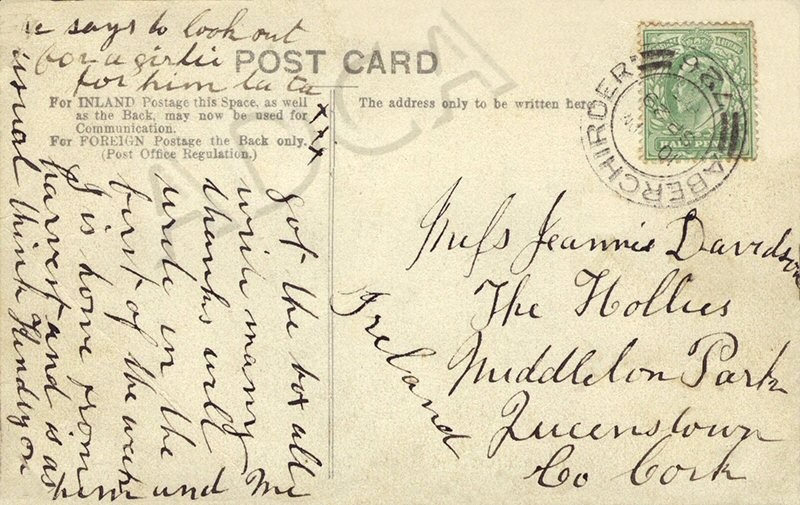 he says to look out
for a girlie
for him ta ta
xxx
POST CARD
For INLAND Postage this Space, as well
as the Back, may now be used for
Communication.
For FOREIGN Postage the Back only.
(Post Office Regulation.)
The address only to be written here
HALF PENNY
ABERCHIRDER
726
got the box all
with many
thanks will
write in the
first of the week
J is home from
harvest and is as
usual
think
him and me
Miss Jeannie Davidson
The Hollies
Middleton Park
Queenstown
Co Cork
Ireland